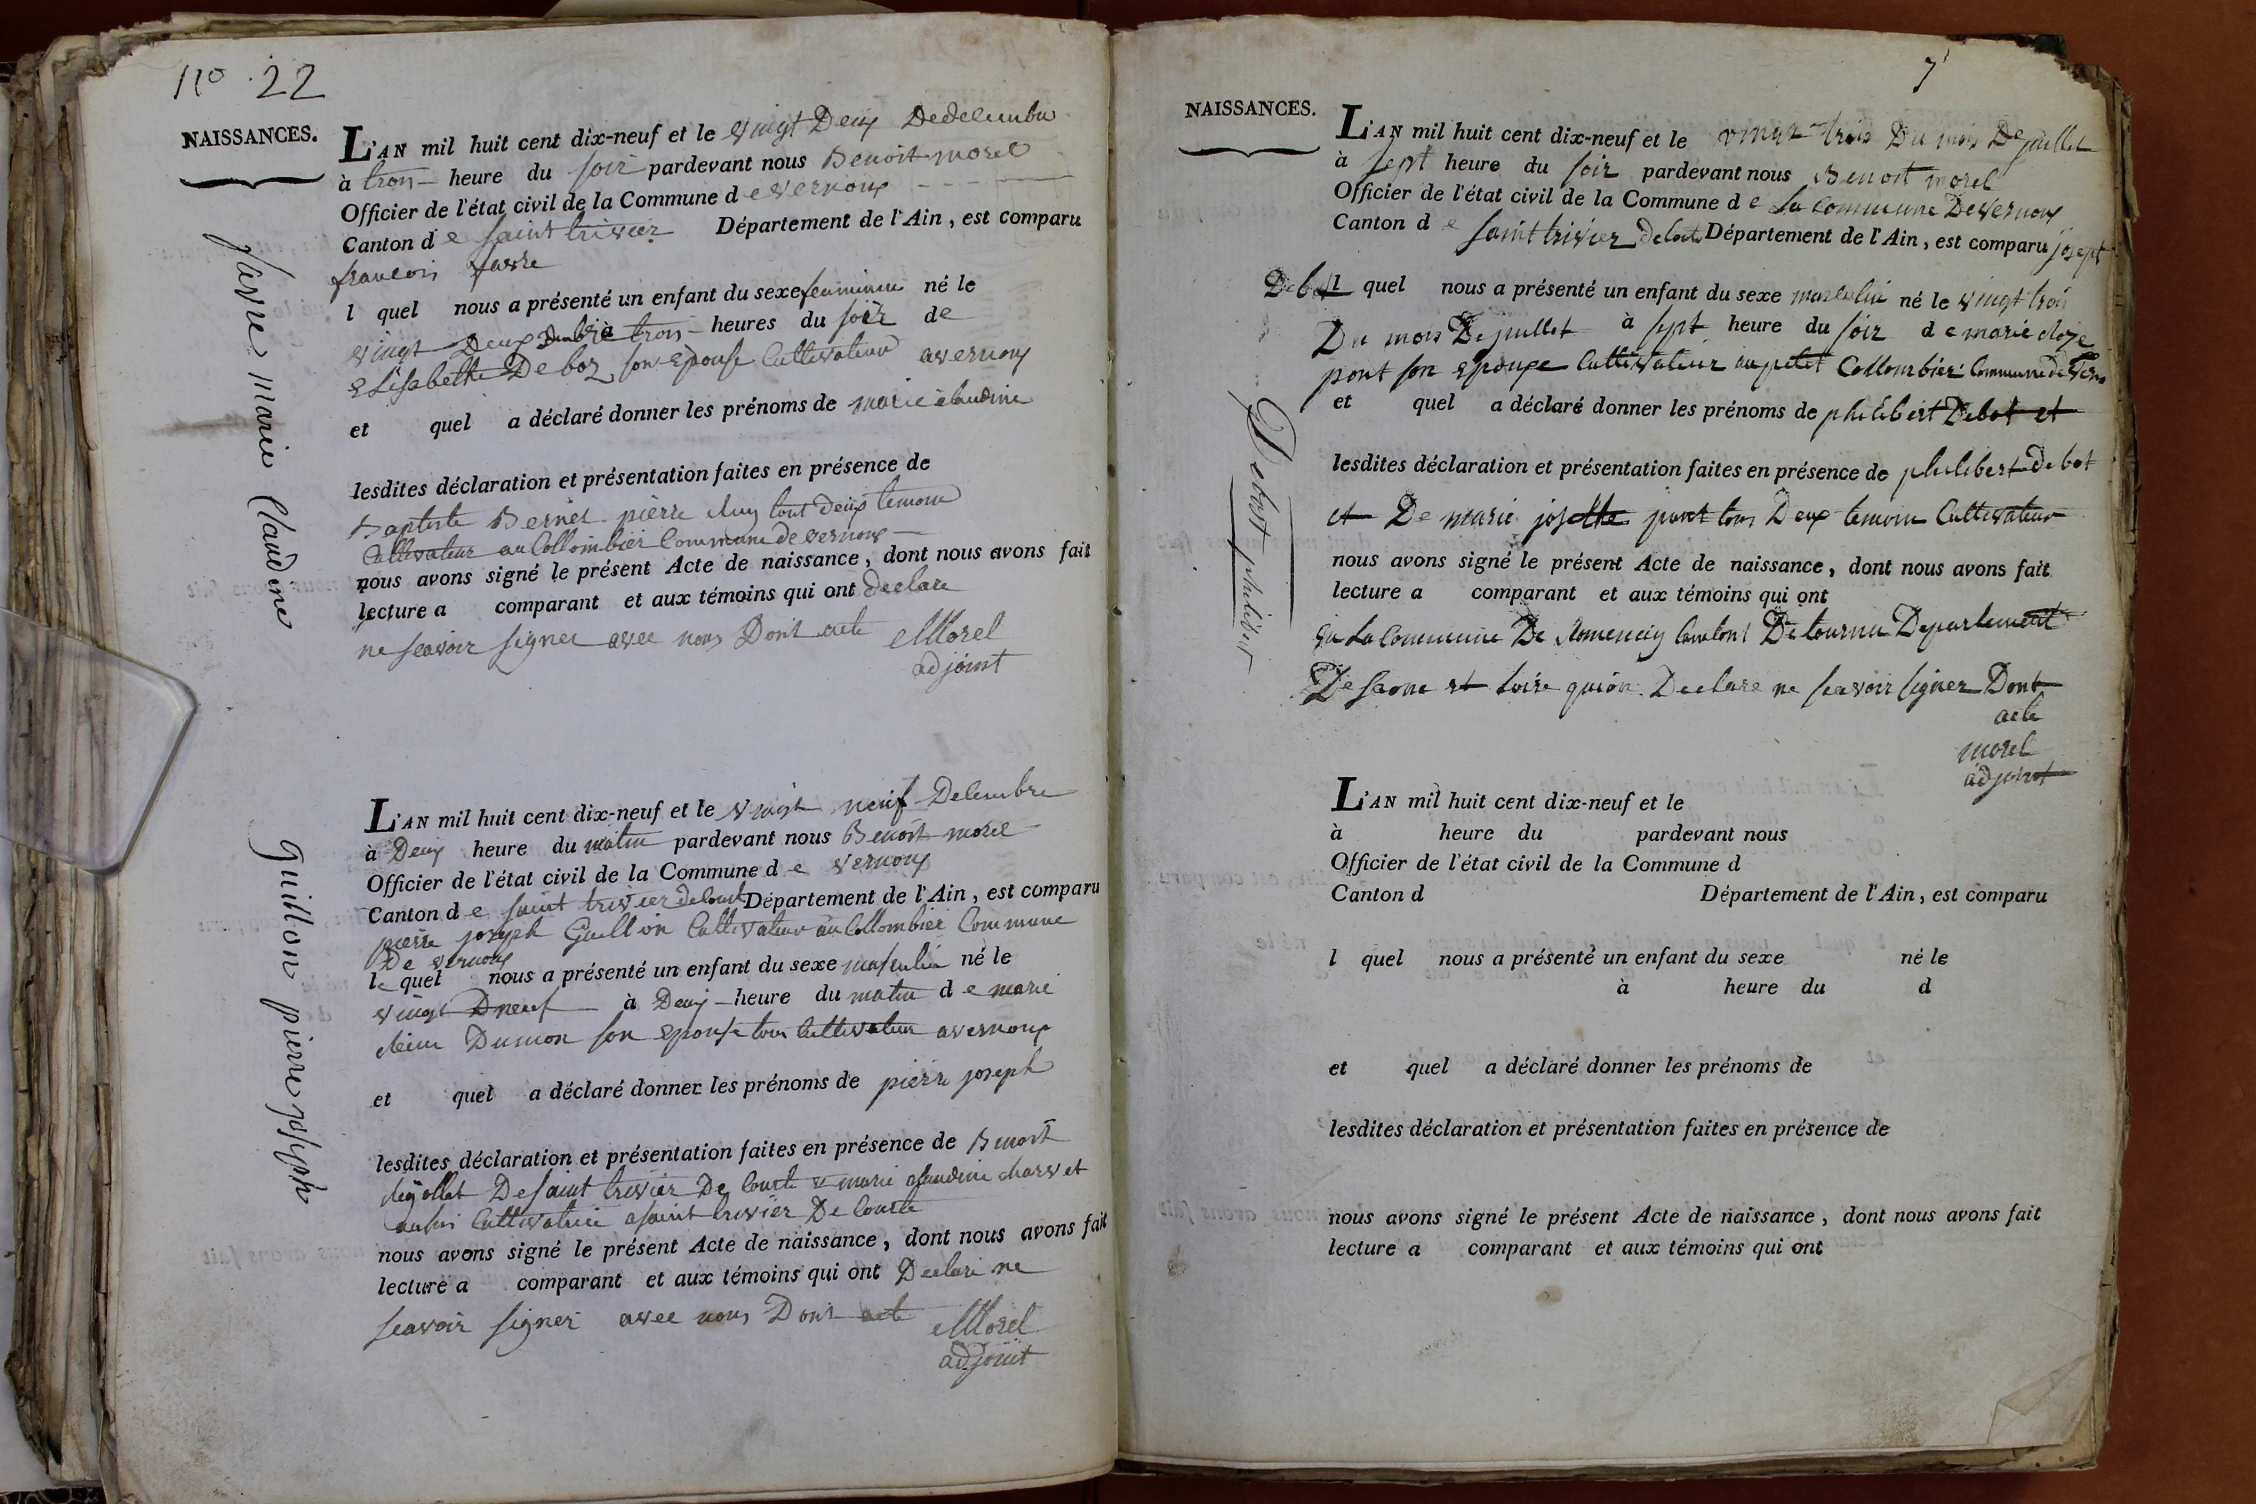 no. 22
NAISSANCES.
L'AN mil huit cent dix-neuf et le vingt Deux Dedelembre
à trois heure du soir pardevant nous Benoit morel
Officier de l'état civil de la Commune de vernoux
Canton de saint trivier Département de l'Ain, est comparu
francois favre
l quel nous a présenté un enfant du sexe feminin né le
vingt Deux à trois heures du soir de
Elisabethe Deboz son Epouse Cultivateur avernoux
et quel a déclaré donner les prénoms de marie claudine
lesdites déclaration et présentation faites en présence de
Baptiste Bernet pierre tout Deux temoin
Cultivateur au Collombier Commune de vernoux
nous avons signé le présent Acte de naissance, dont nous avons fait
lecture a comparant et aux témoins qui ont declare
ne scavoir signer avec nous Dont acte Morel
adjoint
favre marie Claudine
L'AN mil huit cent dix-neuf et le vingt neuf Delembre
à Deux heure du matin pardevant nous Benoit morel
Officier de l'état civil de la Commune de vernoux
Canton de saint trivier decourt Département de l'Ain, est comparu
pierre joseph Guillon Cultivateur au Collombier Commune
De vernoux
le quel nous a présenté un enfant du sexe masculin né le
vingt Dneuf à Deux heure du matin de marie
Dumon son Epouse tous Cultivateur avernoux
et quel a déclaré donner les prénoms de pierre joseph
lesdites déclaration et présentation faites en présence de Benoit
De saint trivier De Courte et marie claudine charvet
aussi Cultivatrice asaint trivier De Courte
nous avons signé le présent Acte de naissance, dont nous avons fait
lecture a comparant et aux témoins qui ont Declare ne
scavoir signer avec nous Dont acte Morel
adjoint
Guillon pierre joseph
7
NAISSANCES.
L'AN mil huit cent dix-neuf et le vingt trois Du mois De juillet
à sept heure du soir pardevant nous Benoit morel
Officier de l'état civil de la Commune de La Commune De vernoux
Canton de saint trivier Département de l'Ain, est comparu josept
Debot l quel nous a présenté un enfant du sexe masculin né le vingt trois
Du mois De juillet à sept heure du soir de marie
pont son Epouxe Cultivateur au petit Collombier Commune de
et quel a déclaré donner les prénoms de philibert Debot et
lesdites déclaration et présentation faites en présence de philibert Debot
et De marie josette pont tous Deux temoin Cultivateur
nous avons signé le présent Acte de naissance, dont nous avons fait
lecture a comparant et aux témoins qui ont
La Commune De Romenay Canton De tournu Departement
De Saone et Loire quion Declare ne scavoir signer Dont
acte
morel
adjoint
Debot philibert
L'AN mil huit cent dix-neuf et le
à heure du pardevant nous
Officier de l'état civil de la Commune d
Canton d Département de l'Ain, est comparu
l quel nous a présenté un enfant du sexe né le
à heure du d
et quel a déclaré donner les prénoms de
lesdites déclaration et présentation faites en présence de
nous avons signé le présent Acte de naissance, dont nous avons fait
lecture a comparant et aux témoins qui ont